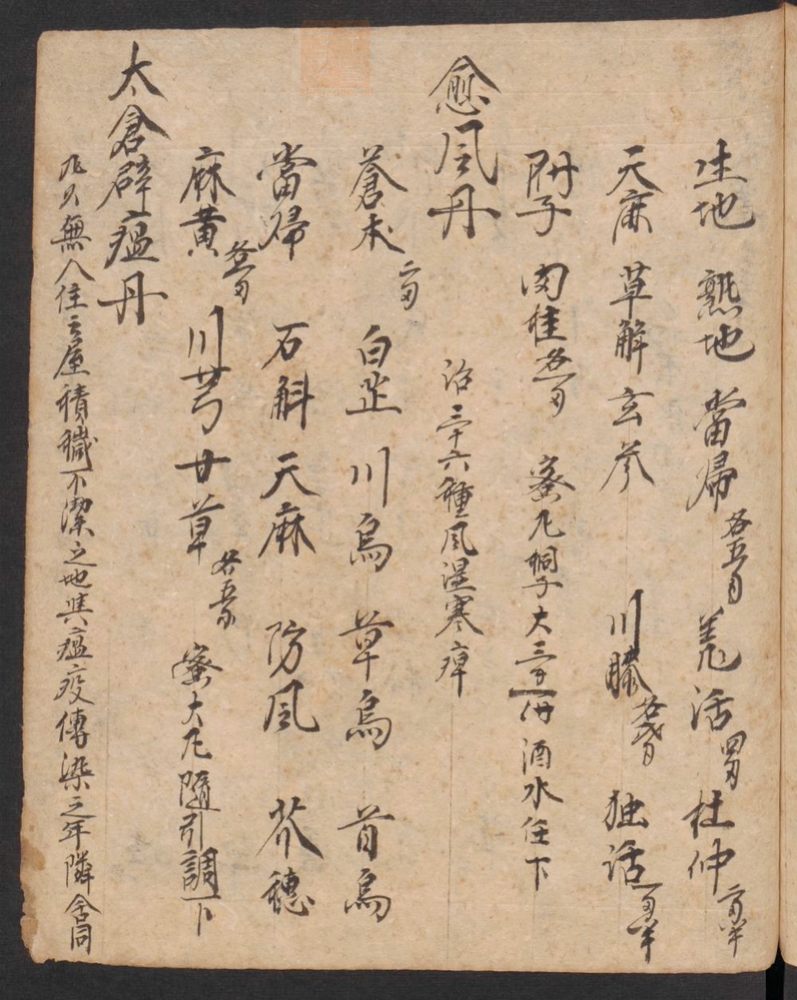 生地 熟地 當歸 各五月 羌活 四月 杜仲 二月半
天麻 草解 玄参 川膝 各 独活 一月半
附子 肉桂 各一月 蜜凡桐子大 酒水任下
愈風丹 治三十六種風湿寒痺
蒼术 二月 白芷 川烏 草烏 首烏
當歸 石斛 天麻 防風 芥穗
麻黄 各一月 川芎 甘草 各五 蜜大凡隨引調下
太倉辟瘟丹
凡久無人住之屋積穢不潔之地與瘟疫傳染之年隣舍同